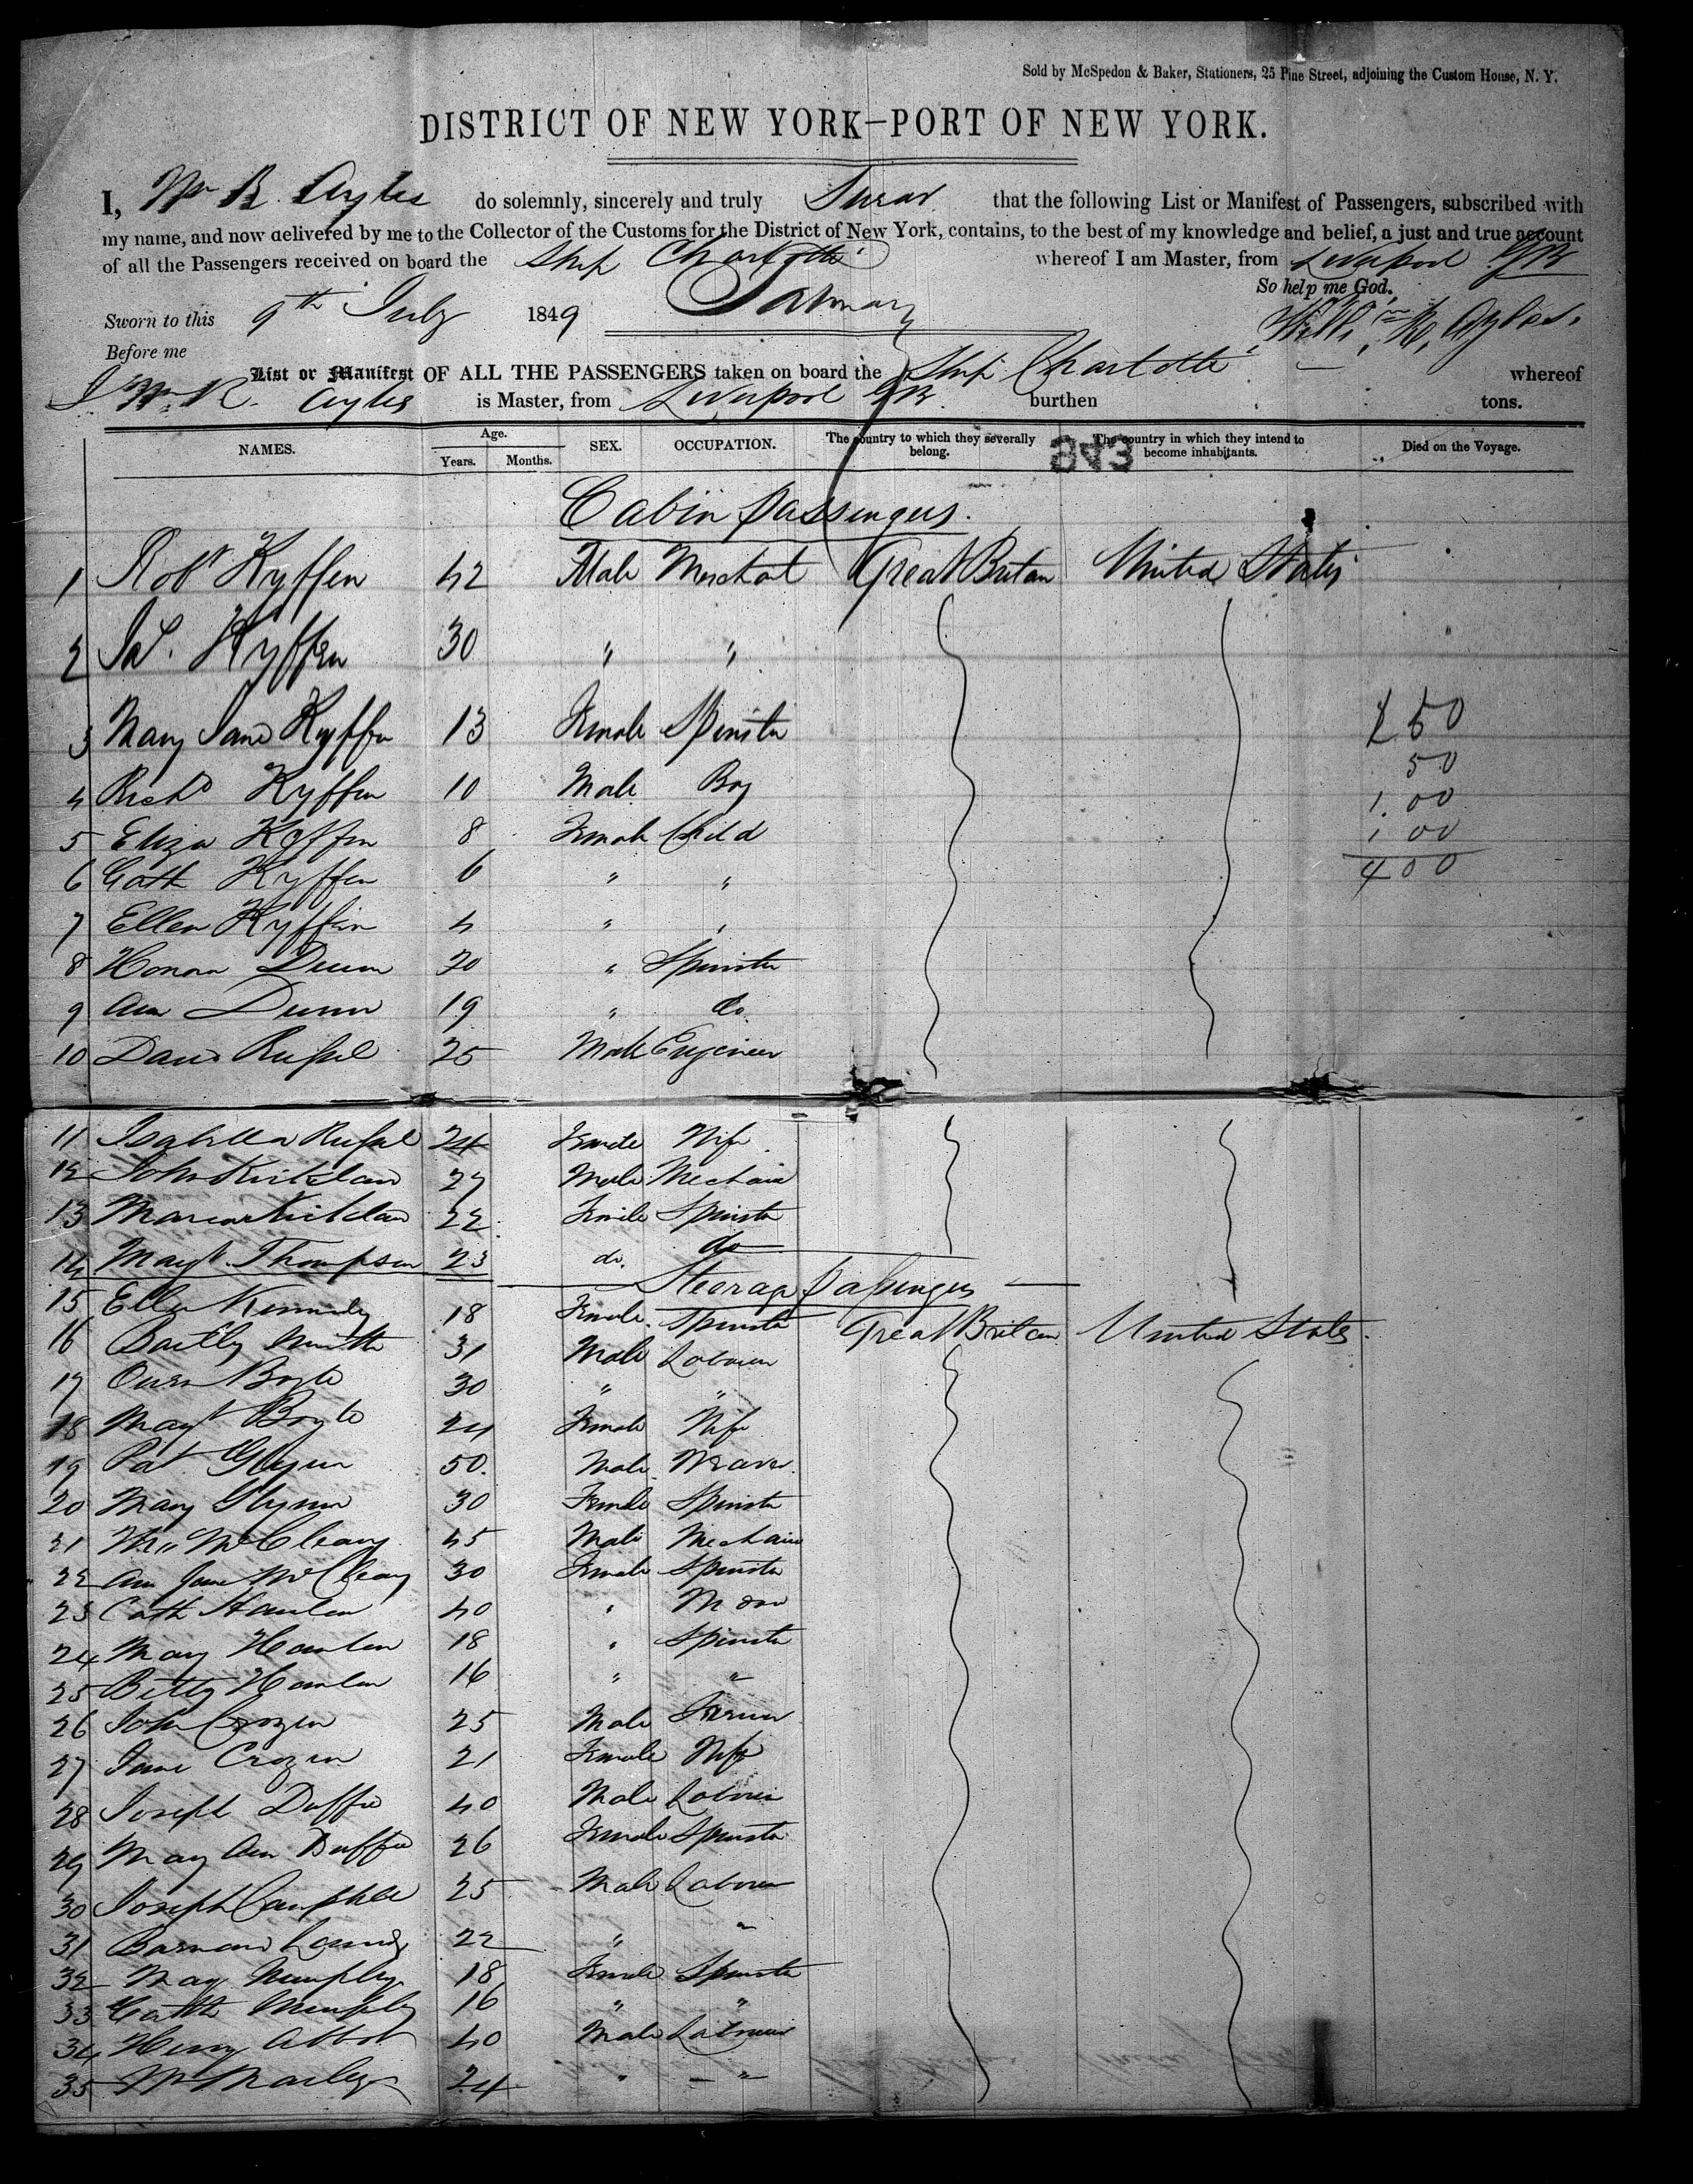 Sold by McSpedon & Baker, Stationers, 25 Pine Street, adjoining the Custom House, N. Y.
DISTRICT OF NEW YORK—PORT OF NEW YORK.
I, Wm R. Ayles do solemnly, sincerely and truly Swear that the following List or Manifest of Passengers, subscribed with
my name, and now delivered by me to the Collector of the Customs for the District of New York, contains, to the best of my knowledge and belief, a just and true account
of all the Passengers received on board the Ship Charlotte whereof I am Master, from Liverpool
So help me God.
Sworn to this 9th July 1849 Willm R. Ayles.
Before me
List or Manifest OF ALL THE PASSENGERS taken on board the Ship Charlotte whereof
Wm R. Ayles is Master, from Liverpool burthen tons.
NAMES. Age. Years. Months. SEX. OCCUPATION. The country to which they severally belong. The country in which they intend to become inhabitants. Died on the Voyage.
343
Cabin passengers.
1 Robt Kyffen 42 Male Merchat Great Britan United States
2 Kyffen 30 " "
3 Mary Jane Kyffen 13 Female Spinster
50
4 Richd Kyffen 10 Male Boy
50
1.00
5 Eliza Kyffen 8 Female Child
1 00
6 Cath Kyffen 6 " "
4 00
7 Ellen Kyffin 4 " "
8 Honora Dunn 20 " Spinster
9 Ann Dunn 19 " do
10 David Russel 25 Male Engineer
11 Isabella Russel 24 Female Wife
12 John 27 Male Mechanic
13 22 Female Spinster
14 Margt. Thompson 23 do. do
Steerage Passengers
15 Ellen Kennedy 18 Female Spinster Great Britan United States.
16 Smith 31 Male Labourer
17 Owen Boyle 30 " "
18 Margt Boyle 24 Female Wife
19 Pat Glynn 50. Male Weaver
20 Mary Glynn 30 Female Spinster
21 McCleary 45 Male Mechanic
22 Ann Jane McCleary 30 Female Spinster
23 Cath Hanlen 40 "
24 Mary Hanlen 18 " Spinster
25 Betty Hanlen 16 " "
26 John Crozen 25 Male Farmer
27 Jane Crozen 21 Female Wife
28 Joseph Duffie 40 Male Labourer
29 Mary Ann Duffie 26 Female Spinster
30 Joseph Campbell 25 Male Labourer
31 Barnard 22 " "
32 Mary Murphy 18 Female Spinster
33 Cath Murphy 16 " "
34 Henry Abbot 40 Male Labourer
35 Wm 24 " "